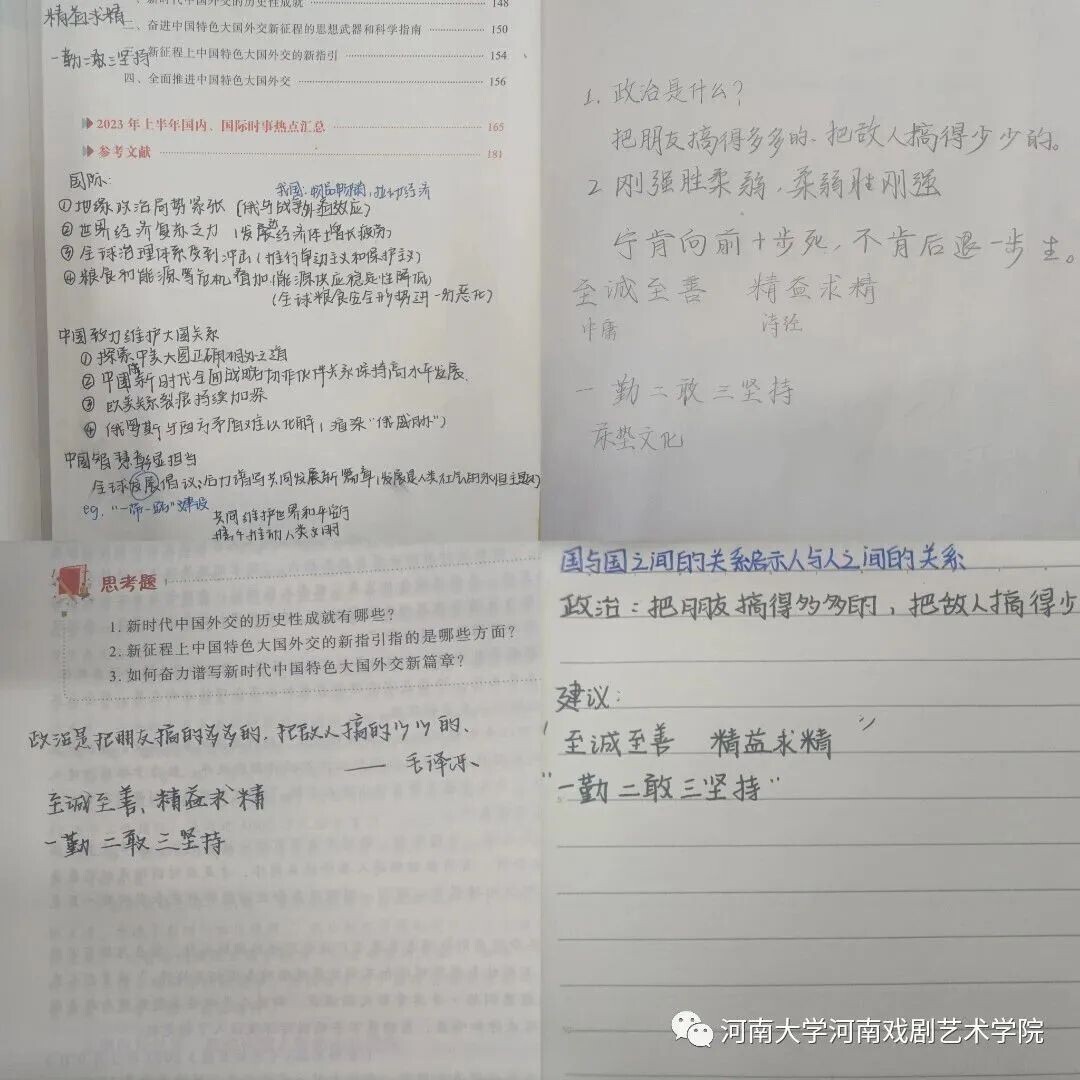 精益求精
一勤二敢三坚持
一、新时代中国外交的历史性成就 148
二、奋进中国特色大国外交新征程的思想武器和科学指南 150
三、新征程上中国特色大国外交的新指引 154
四、全面推进中国特色大国外交 156
2023年上半年国内、国际时事热点汇总 165
参考文献 181
国际:
①地缘政治局势紧张(俄乌战争外溢效应)
②世界经济复苏乏力(发展经济体增长疲弱)
③全球治理体系受到冲击(推行单边主义和保护主义)
④粮食和能源等危机叠加(能源供应稳定性降低)
(全球粮食安全形势进一步恶化)
中国致力维护大国关系
①探索中美大国正确相处之道
②中国新时代全面战略协作伙伴关系保持高水平发展
③欧美关系裂痕持续加深
④俄罗斯与西方矛盾难以化解
中国智慧彰显担当
全球发展倡议
eg. “一带一路”建设
共同维护世界和平安宁
1. 政治是什么?
把朋友搞得多多的、把敌人搞得少少的。
2 刚强胜柔弱,柔弱胜刚强
宁肯向前十步死,不肯后退一步生。
至诚至善 精益求精
中庸 诗经
一勤二敢三坚持
床垫文化
思考题
1. 新时代中国外交的历史性成就有哪些?
2. 新征程上中国特色大国外交的新指引指的是哪些方面?
3. 如何奋力谱写新时代中国特色大国外交新篇章?
政治是把朋友搞的多多的,把敌人搞的少少的、
—— 毛泽东、
至诚至善、精益求精
一勤二敢三坚持
国与国之间的关系启示人与人之间的关系
政治:把朋友搞得多多的,把敌人搞得少
建议:
至诚至善 精益求精
“一勤二敢三坚持”
河南大学河南戏剧艺术学院